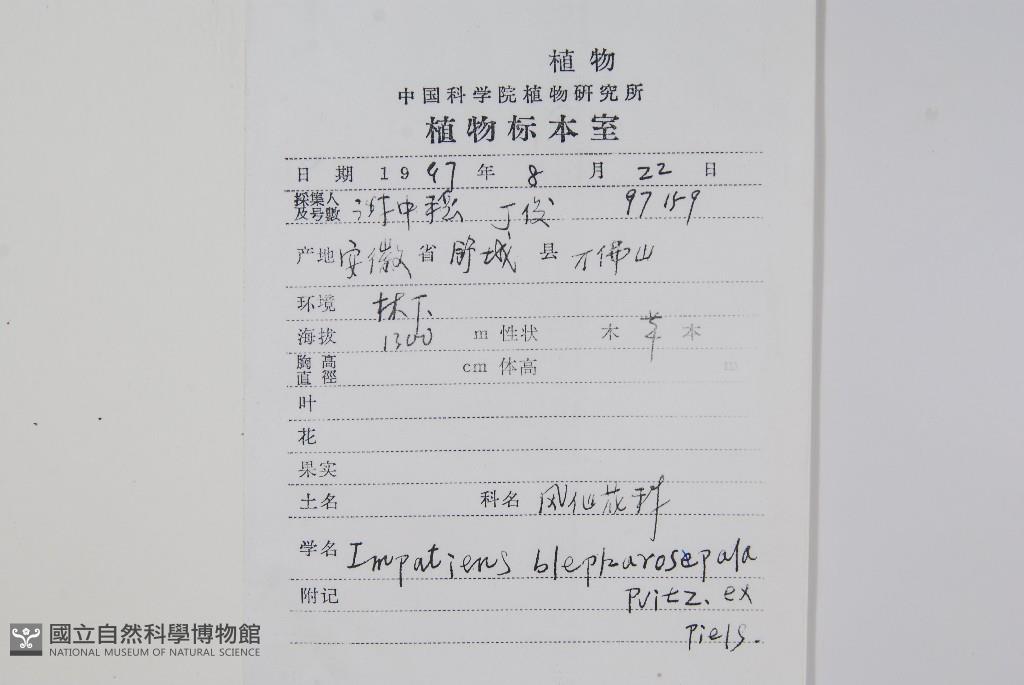 植物
中国科学院植物研究所
植物标本室
日期 1997年 8月 22日
採集人及号數 中 丁俊 97159
产地 安徽省 舒城县 万佛山
环境 林下
海拔 1300 m 性状 木 草 本
胸高直徑 cm 体高 m
叶
花
果实
土名 科名 凤仙花科
学名 Impatiens blepharosepala
附记 Pritz. ex
Diels.
國立自然科學博物館
NATIONAL MUSEUM OF NATURAL SCIENCE